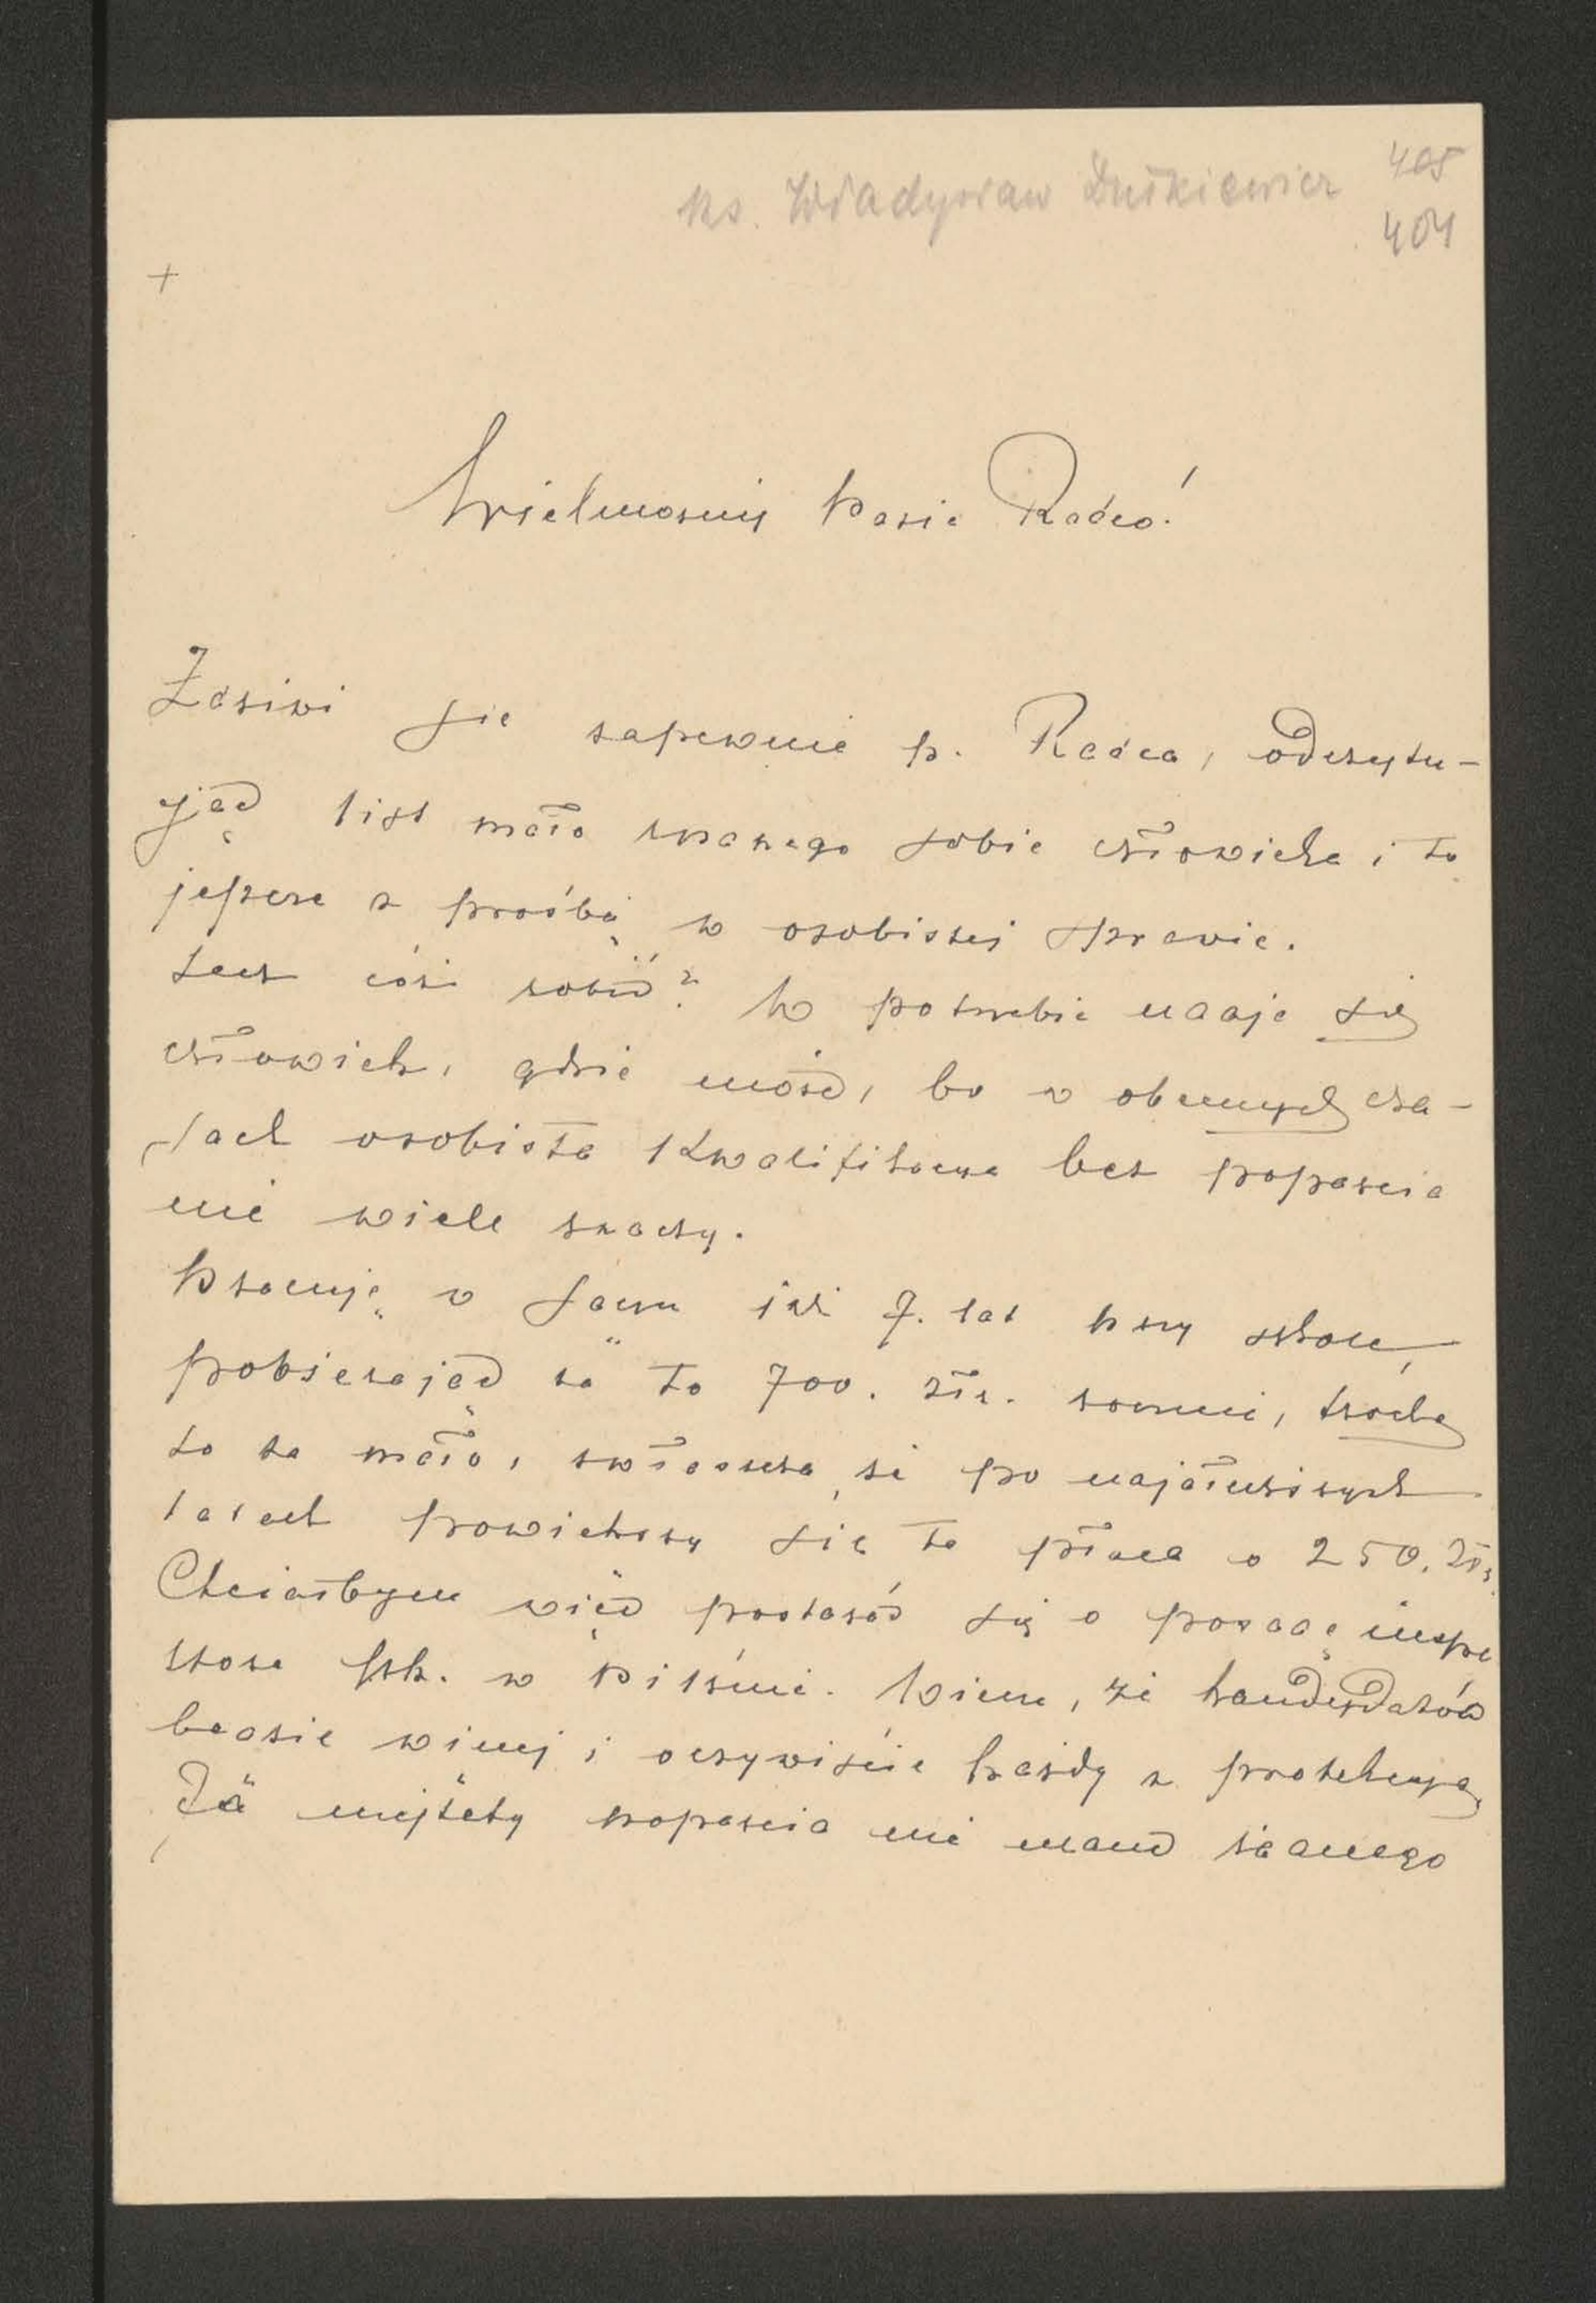 405
ks. Władysław Dutkiewicz
404
+
Wielmożny Panie Radco!
Zdziwi się zapewne p. Radca, odczytu-
jąc list mało znanego sobie człowieka i to
jeszcze z prośbą w osobistej sprawie.
Lecz cóż robić? W potrzebie udaje się
człowiek, gdzie może, bo w obecnych cza-
sach osobista kwalifikacya bez poparcia
nie wiele znaczy.
Pracuję w Sączu już 7. lat przy szkole,
pobierając za to 700. złr. rocznie, trochę
to za mało, zwłaszcza, że po najdłuższych
latach powiększy się ta płaca o 250. złr.
Chciałbym więc postarać się o posadę inspe
ktora szk. w Pilźnie. Wiem, że kandydatów
będzie więcej i oczywiście każdy z protekcyą,
Ja niestety poparcia nie mam żadnego